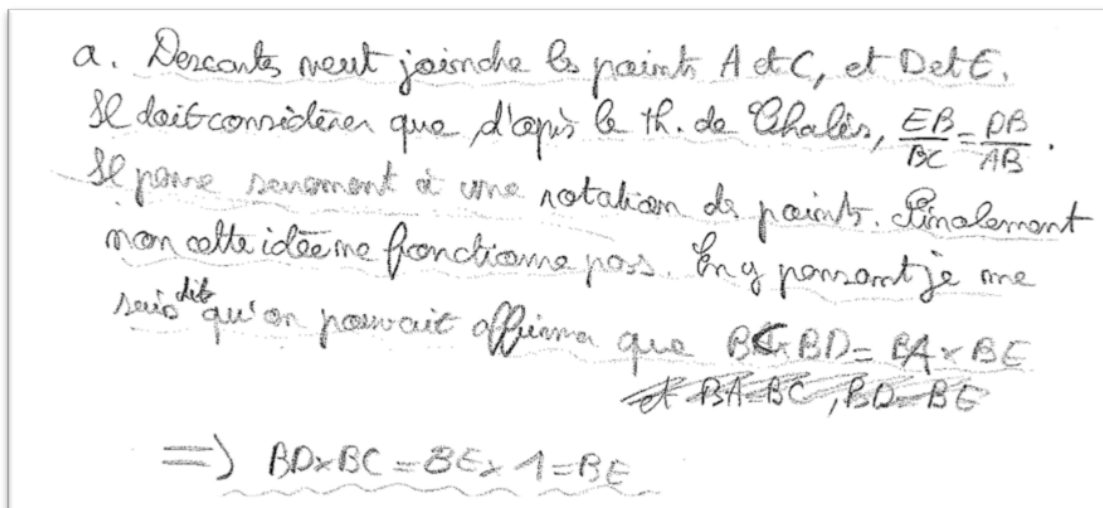 a. Descartes veut joindre les points A et C, et D et E.
Il doit considérer que, d'après le th. de Thalès, EB/BC = DB/AB.
Il pense surement à une rotation de points. Finalement
non cette idée ne fonctionne pas. En y pensant je me
suis dit qu'on pouvait affirmer que BC×BD = BA×BE
et BA=BC, BD=BE
=> BD×BC = BE×1 = BE